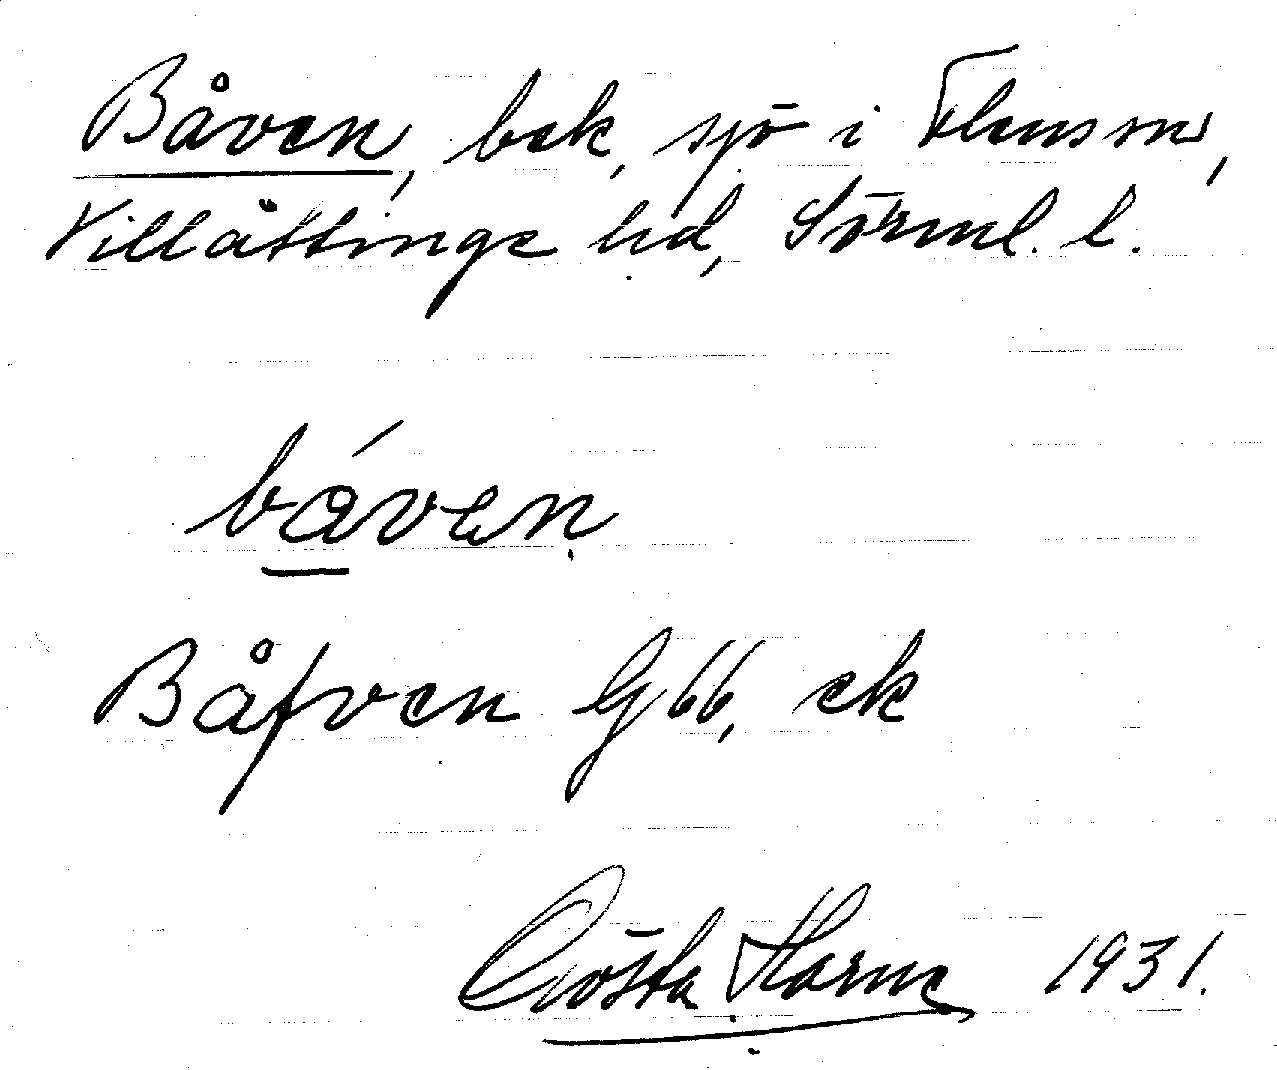 Båven, bek, sjö i Flens sn,
Villåttinge hd, Sörml. l.
båven
Båfven G 66, ek
Gösta Harne 1931.